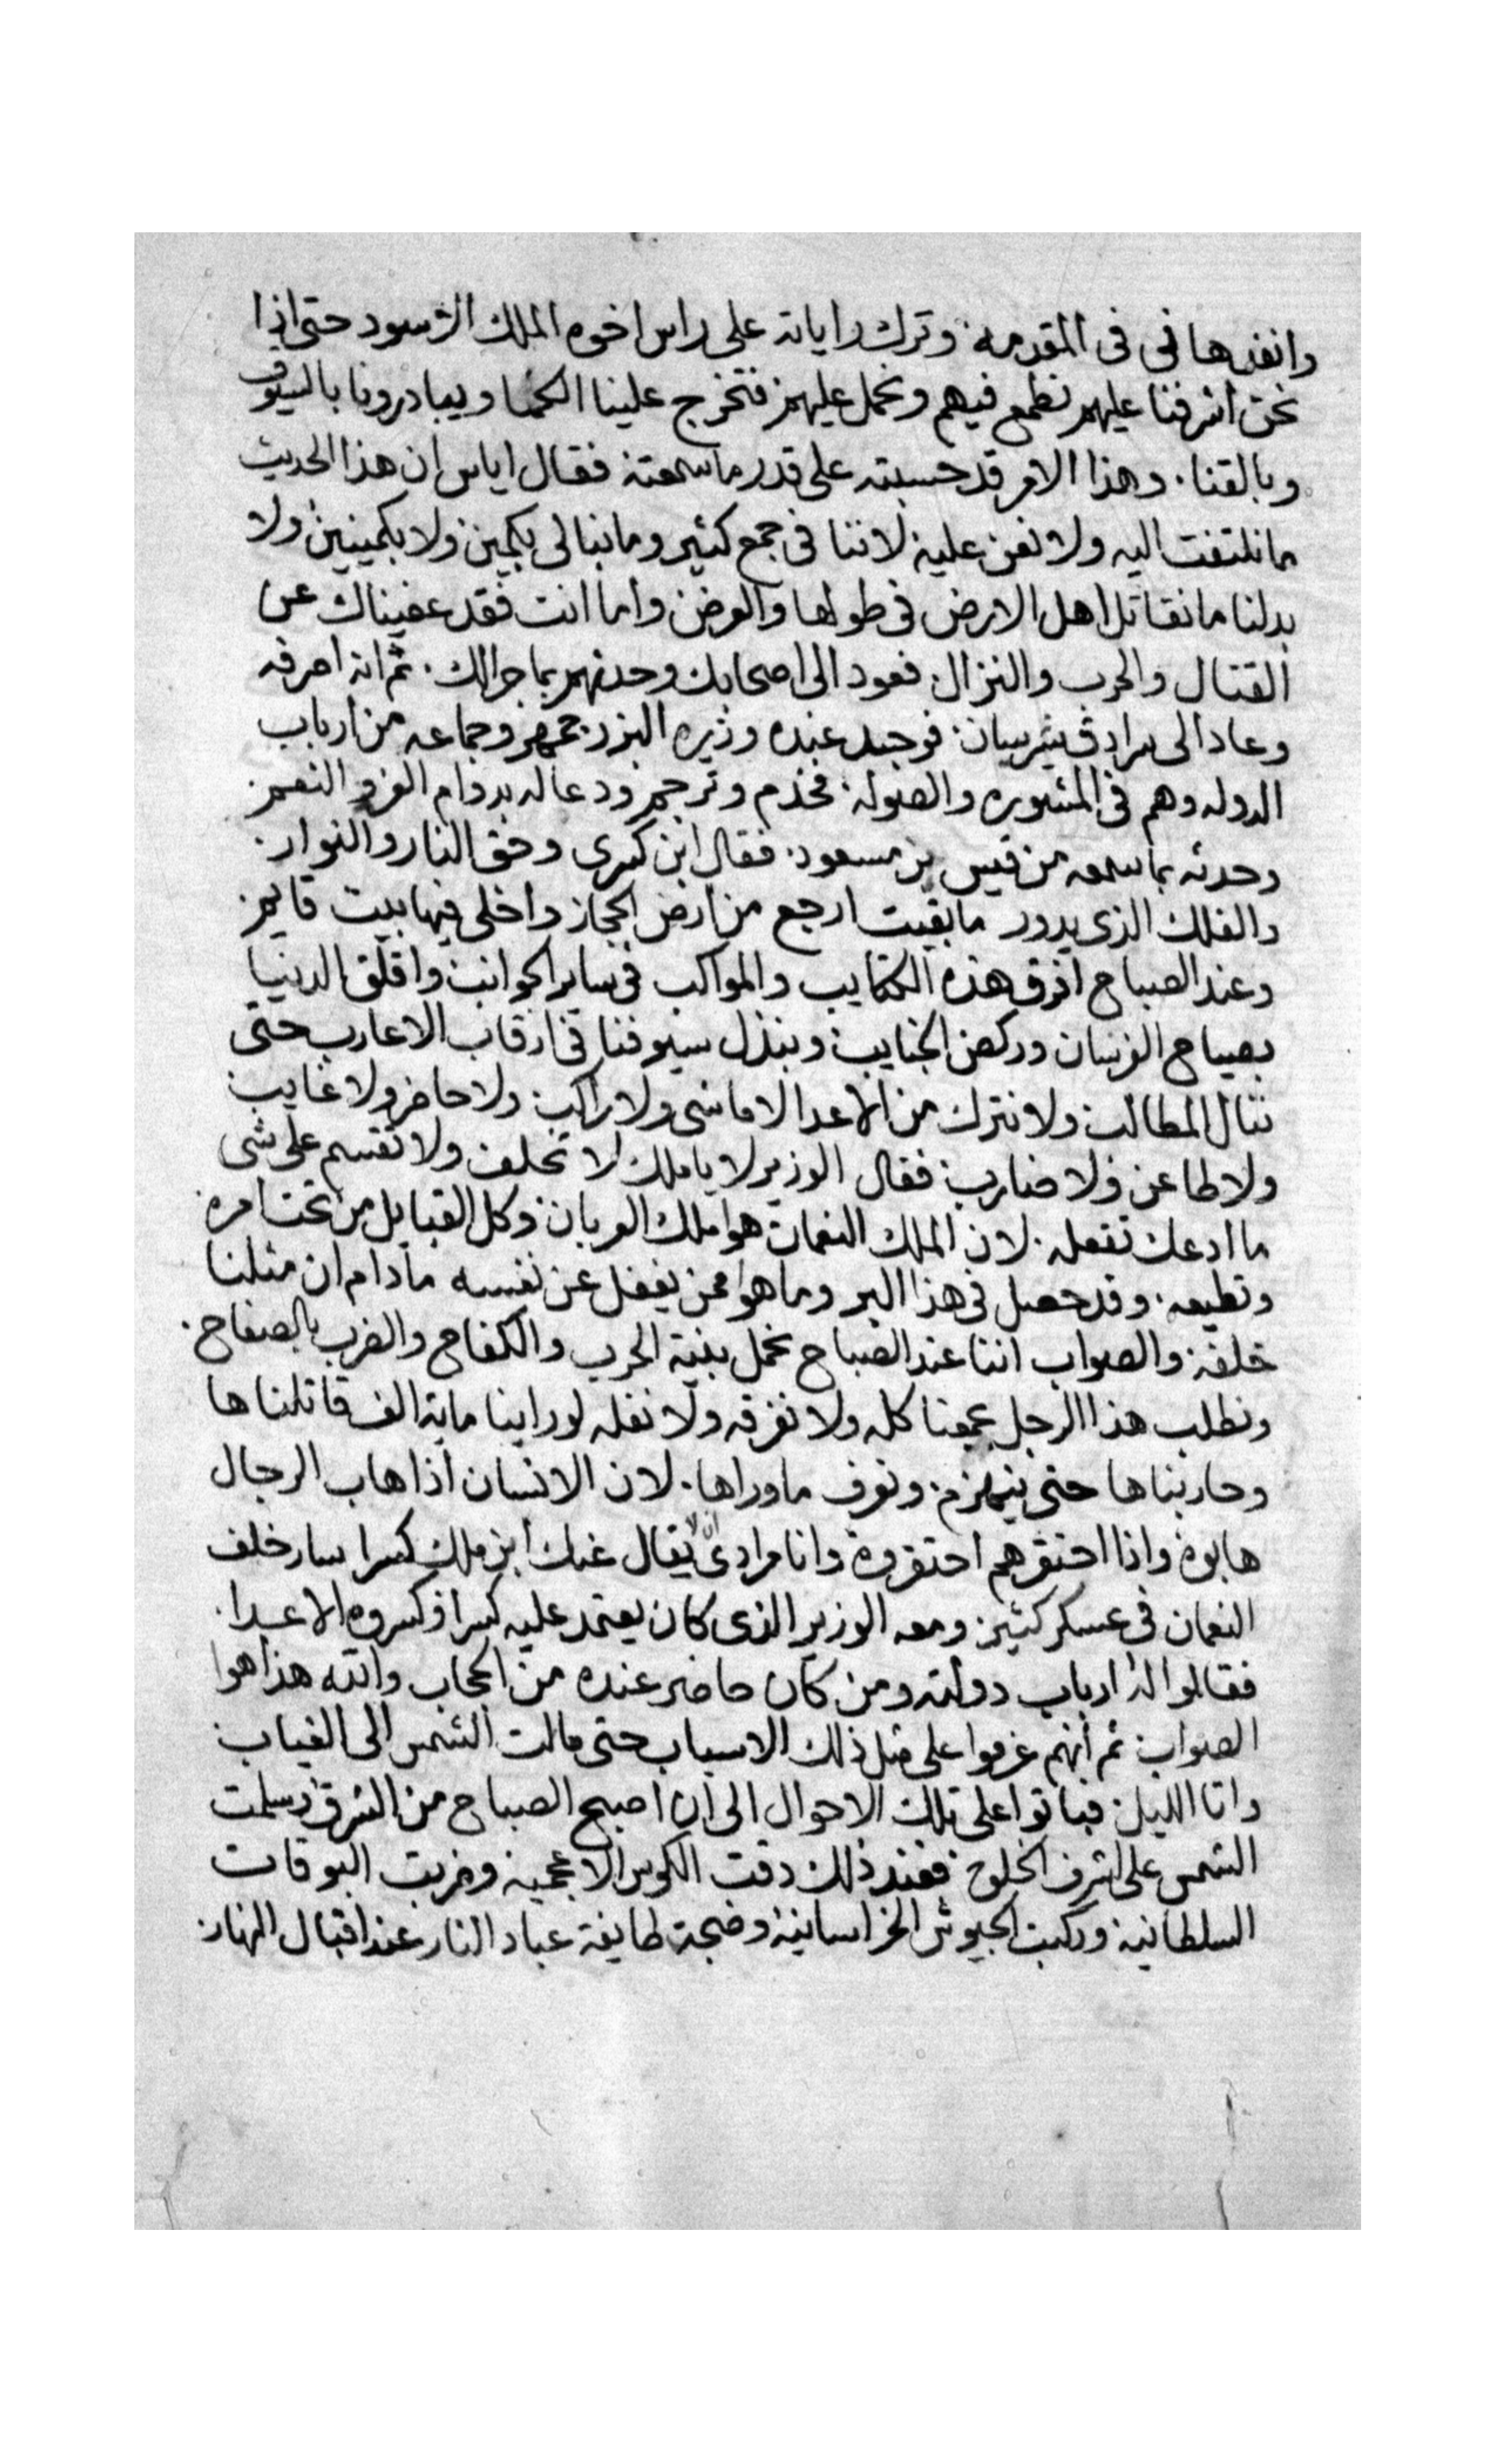 وانفدها في في المقدمة وترك راياته على راس اخوه الملك الاسود حتى اذا
نحن اشرفنا عليهم نطمع فيهم ونحمل عليهم فتخرج علينا الكمنا ويبادرونا بالسيوف
وبالقنا. وهذا الامر قد حسبته على قدر ما سمعته فقال اياس ان هذا الحديث
ما نلتفت اليه ولا نعن عليه لاننا في جمع كثير وما نبالى بكمين ولا بكمينين ولا
بدلنا ما نقاتل اهل الارض في طولها والعرض واما انت فقد عفيناك عن
القتال والحرب والنزال. فعود الى اصحابك وحدثهم بما جرالك. ثم انه اصرفه
وعاد الى سرادق شربيان. فوجد عنده وزيره البزرجمهر وجماعه من ارباب
الدوله وهم في المشوره والصوله. فخدم وترجم ودعا له بدوام العز والنعم.
وحدثه بما سمعه من قيس بن مسعود. فقال ابن كسرى وحق النار والنوار.
والفلك الذى يدور ما بقيت ارجع من ارض الحجاز واخلى فيها بيت قايم.
وعند الصباح افرق هذه الكتايب والمواكب في ساير الجوانب واقلق الدنيا
بصياح الفرسان وركض الجنايب وبنذل سيوفنا في ارقاب الاعارب حتى
ننال المطالب ولا نترك من الاعدا لا ماشى ولا راكب. ولا حاضر ولا غايب
ولا طاعن ولا ضارب فقال الوزير لا يا ملك لا تحلف ولا تقسم على شى
ما ادعك تفعله. لان الملك النعمان هوا ملك العربان وكل القبايل من تحت امره
وتطيعه. وقد حصل في هذا البر وما هوا ممن يغفل عن نفسه مادام ان مثلنا
خلفه. والصواب اننا عند الصباح نحمل بنية الحرب والكفاح والضرب بالصفاح.
ونطلب هذا الرجل بجمعنا كله ولا نفرقه ولا نفله لو راينا ماية الف قاتلناها
وحاربناها حتى ينهزم. ونعرف ماوراها. لان الانسان اذا هاب الرجال
هابوه واذا احتقرهم احتقروه وانا مرادى ان لا يقال عنك ابن ملك كسرا سار خلف
النعمان في عسكر كثير. ومعه الوزير الذى كان يعتمد عليه كسرا فكسروه الاعدا.
فقالوا له ارباب دولته ومن كان حاضر عنده من الحجاب والله هذا هوا
الصواب. ثم انهم عزموا على مثل ذلك الاسباب حتى مالت الشمس الى الغياب
واتا الليل. فباتوا على تلك الاحوال الى ان اصبح الصباح من الشرق وسلمت
الشمس على اشرف الخلق. فعند ذلك دقت الكوس الاعجميه وضربت البوقات
السلطانيه وركبت الجيوش الخراسانية وضجت طايفة عباد النار عند اقبال النهار.